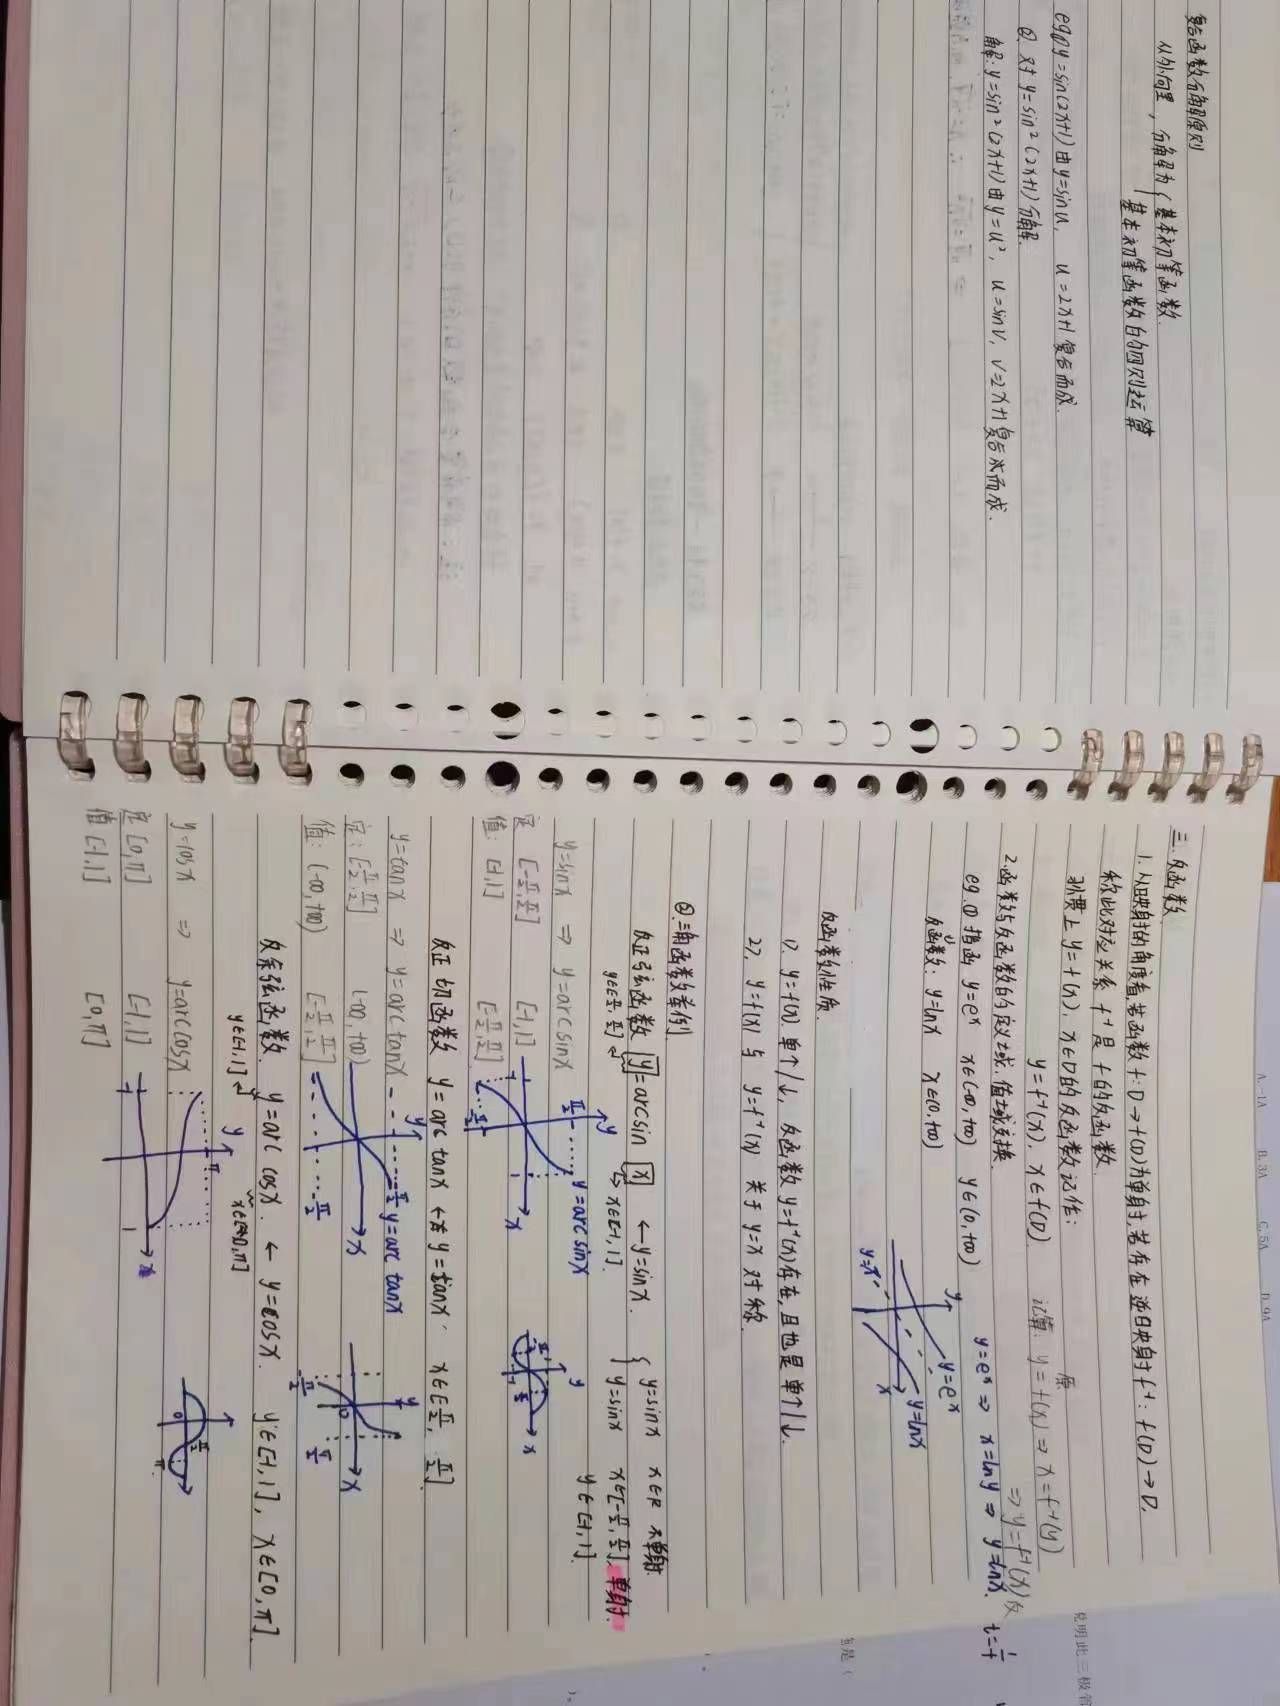 复合函数分解原则
从外向里，分解为{基本初等函数.
基本初等函数的四则运算
eg① y=sin(2x+1) 由 y=sinu, u=2x+1 复合而成.
②. 对 y=sin²(2x+1) 分解.
解: y=sin²(2x+1) 由 y=u², u=sinv, v=2x+1 复合而成.
A. -1A B. 3A C. 5A D. 9A
三. 反函数
1. 从映射的角度看, 若函数 f: D→f(D) 为单射, 若存在逆映射 f⁻¹: f(D)→D,
称此对应关系 f⁻¹ 是 f 的反函数.
习惯上 y=f(x), x∈D 的反函数记作:
y=f⁻¹(x), x∈f(D).
原
计算: y=f(x) ⇒ x=f⁻¹(y)
⇒ y=f⁻¹(x) 反
2. 函数与反函数的定义域, 值域交换.
y=eˣ ⇒ x=lny ⇒ y=lnx.
eg. ① 指函 y=eˣ x∈(-∞,+∞) y∈(0,+∞)
反函数: y=lnx x∈(0,+∞)
y
y=eˣ
y=lnx
x
y=x
反函数性质.
1). y=f(x). 单↑/↓, 反函数 y=f⁻¹(x) 存在, 且也是单↑/↓.
2). y=f(x) 与 y=f⁻¹(x) 关于 y=x 对称.
②. 三角函数举例
反正弦函数 y=arcsin x ← y=sinx. { y=sinx x∈R 不单射.
y∈[-π/2, π/2] x∈[-1,1]. y=sinx x∈[-π/2, π/2]. 单射.
y∈[-1,1].
y=sinx ⇒ y=arcsinx
定 [-π/2, π/2] [-1,1]
值: [-1,1] [-π/2, π/2]
y
π/2
y=arcsinx
-1 1 x
-π/2
y
x
反正切函数 y=arc tanx ← y=tanx x∈[-π/2, π/2].
y=tanx ⇒ y=arc tanx
定: [-π/2, π/2] (-∞,+∞)
值: (-∞,+∞) [-π/2, π/2]
y
π/2 y=arc tanx
x
-π/2
y
0 x
-π/2 π/2
反余弦函数. y=arc cosx. ← y=cosx. y∈[-1,1], x∈[0,π].
y∈[-1,1]
y=cosx ⇒ y=arccosx
定 [0,π] [-1,1]
值 [-1,1] [0,π]
y
π
-1 1 x
0 π/2 π
说明此三极管